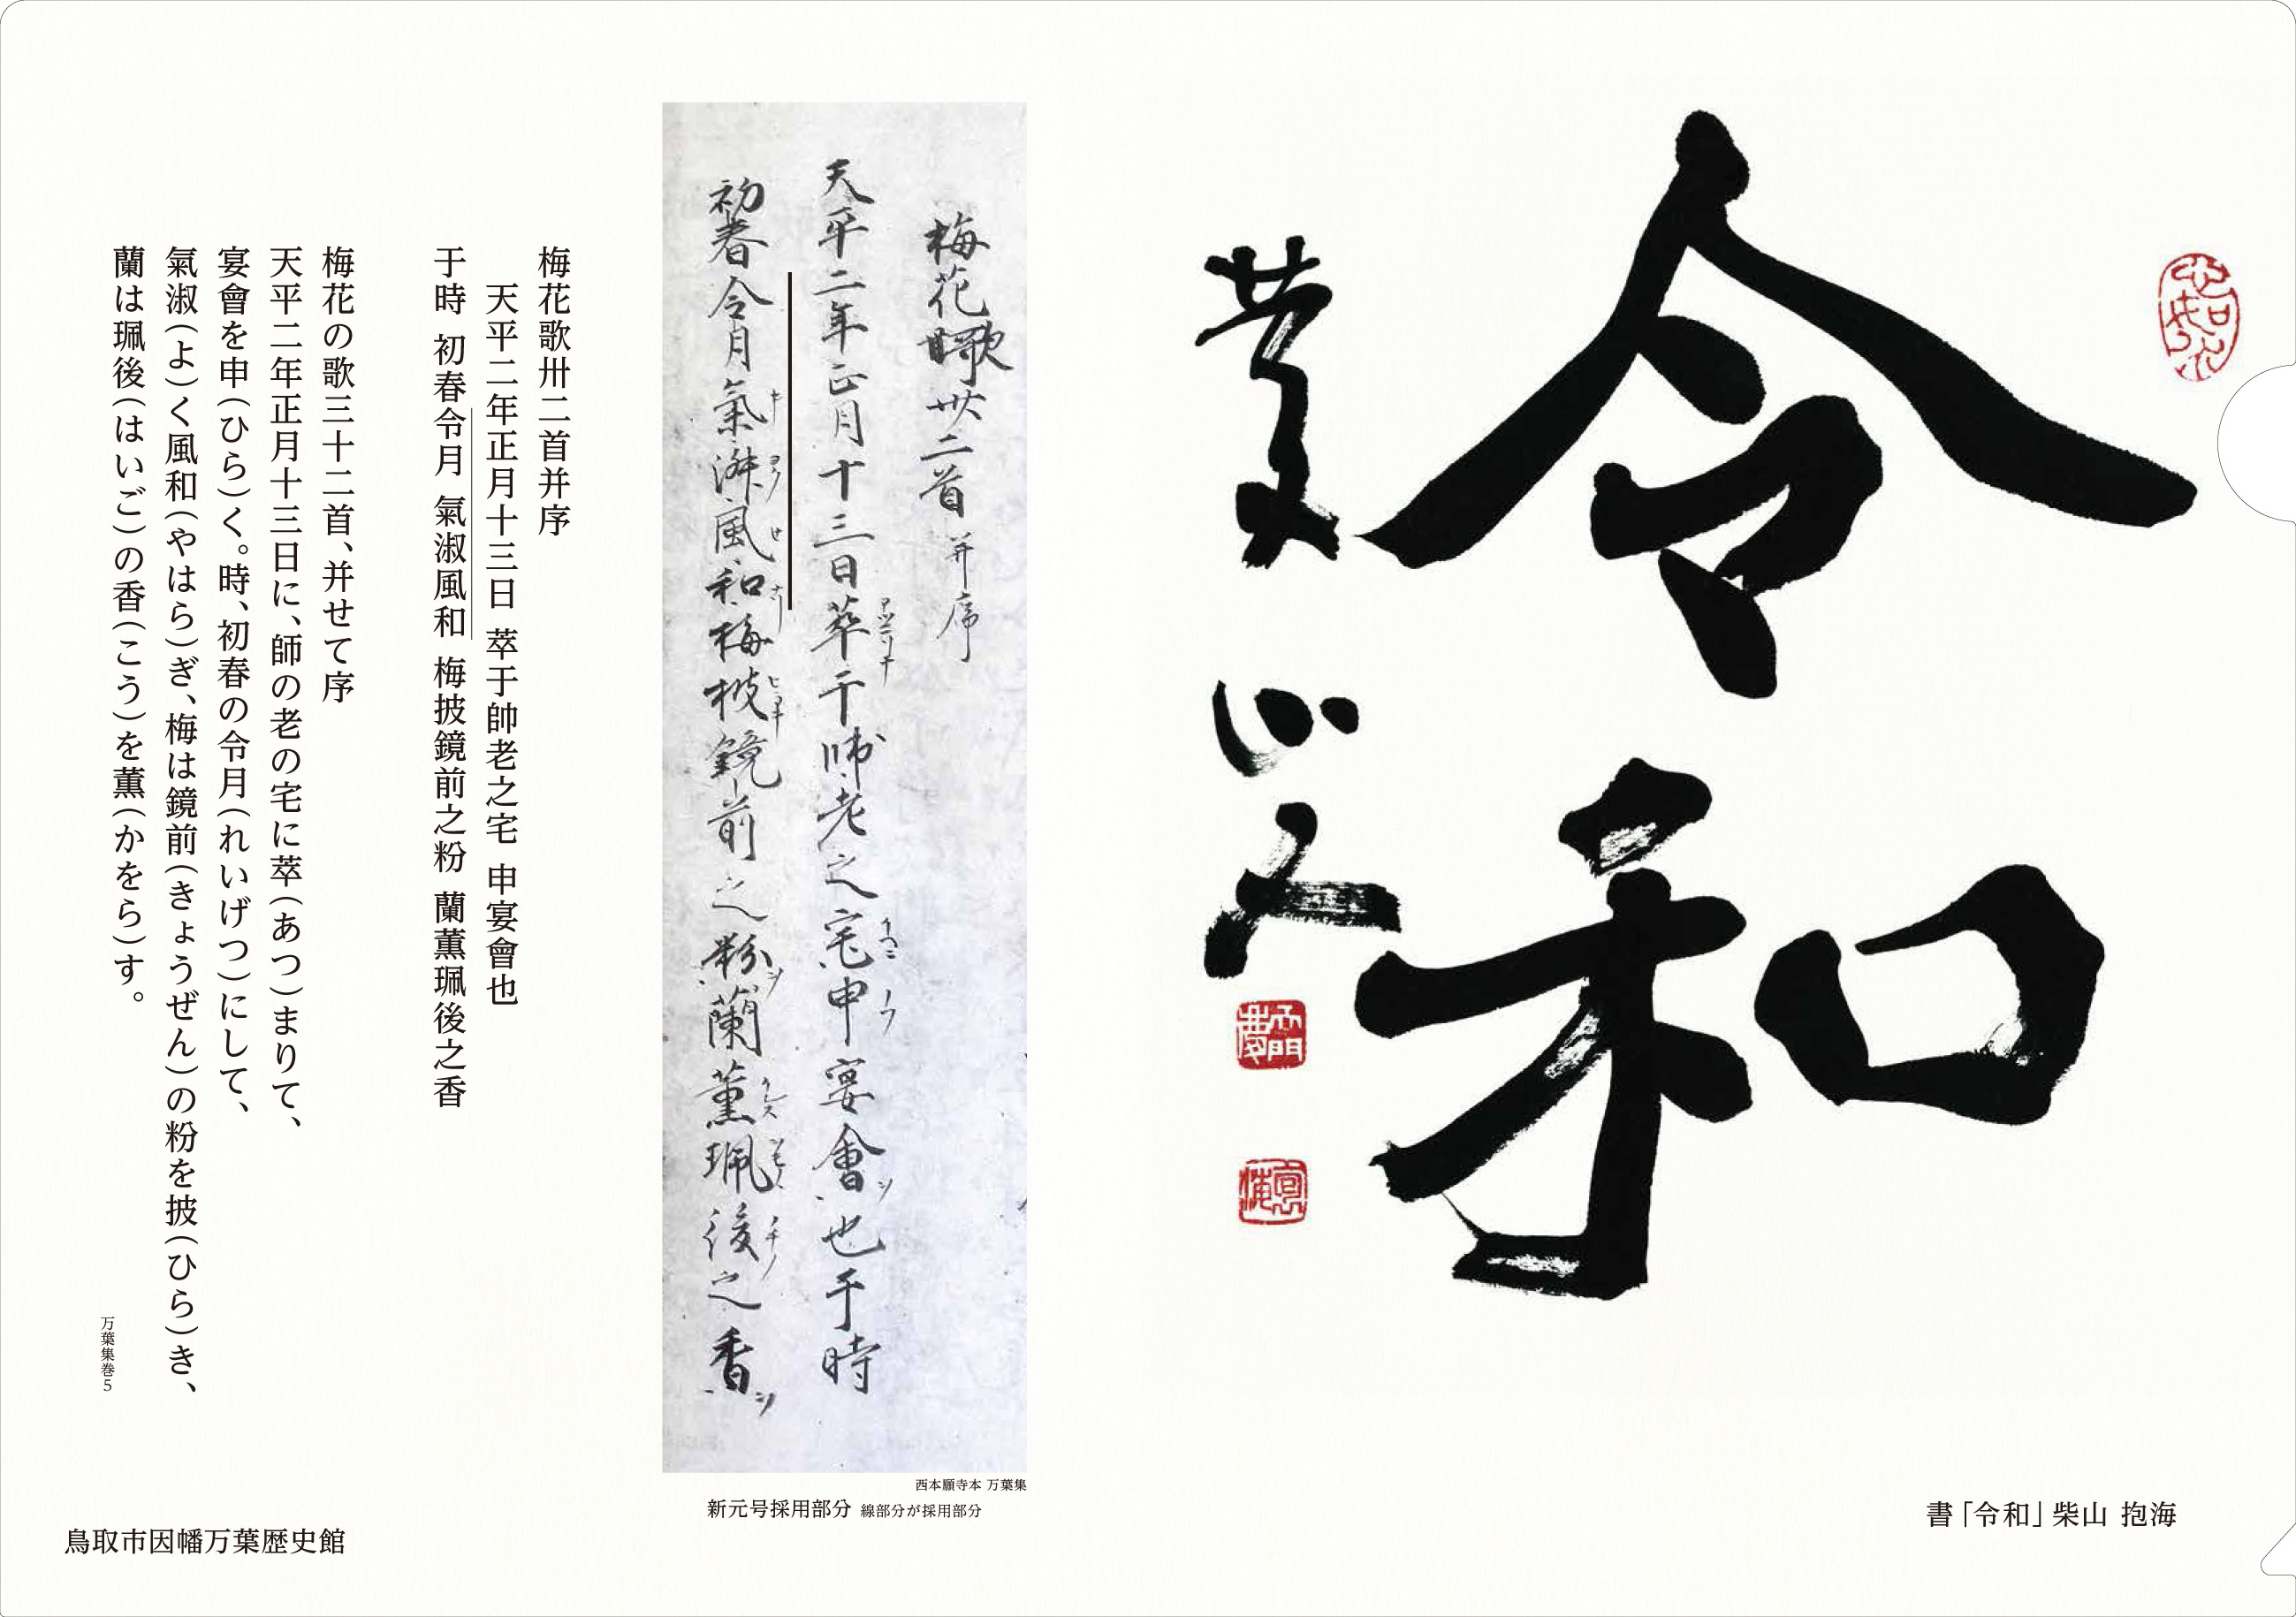 令和
葉心人
梅花謌卅二首并序
天平二年正月十三日萃于帥老之宅申宴會也于時
初春令月氣淑風和梅披鏡前之粉蘭薫珮後之香
西本願寺本 万葉集
新元号採用部分 線部分が採用部分
梅花歌卅二首并序
天平二年正月十三日 萃于帥老之宅 申宴會也
于時 初春令月 氣淑風和 梅披鏡前之粉 蘭薫珮後之香
梅花の歌三十二首、并せて序
天平二年正月十三日に、師の老の宅に萃(あつ)まりて、
宴會を申(ひら)く。時、初春の令月(れいげつ)にして、
氣淑(よ)く風和(やはら)ぎ、梅は鏡前(きょうぜん)の粉を披(ひら)き、
蘭は珮後(はいご)の香(こう)を薫(かをら)す。
万葉集巻5
鳥取市因幡万葉歴史館
書「令和」柴山 抱海